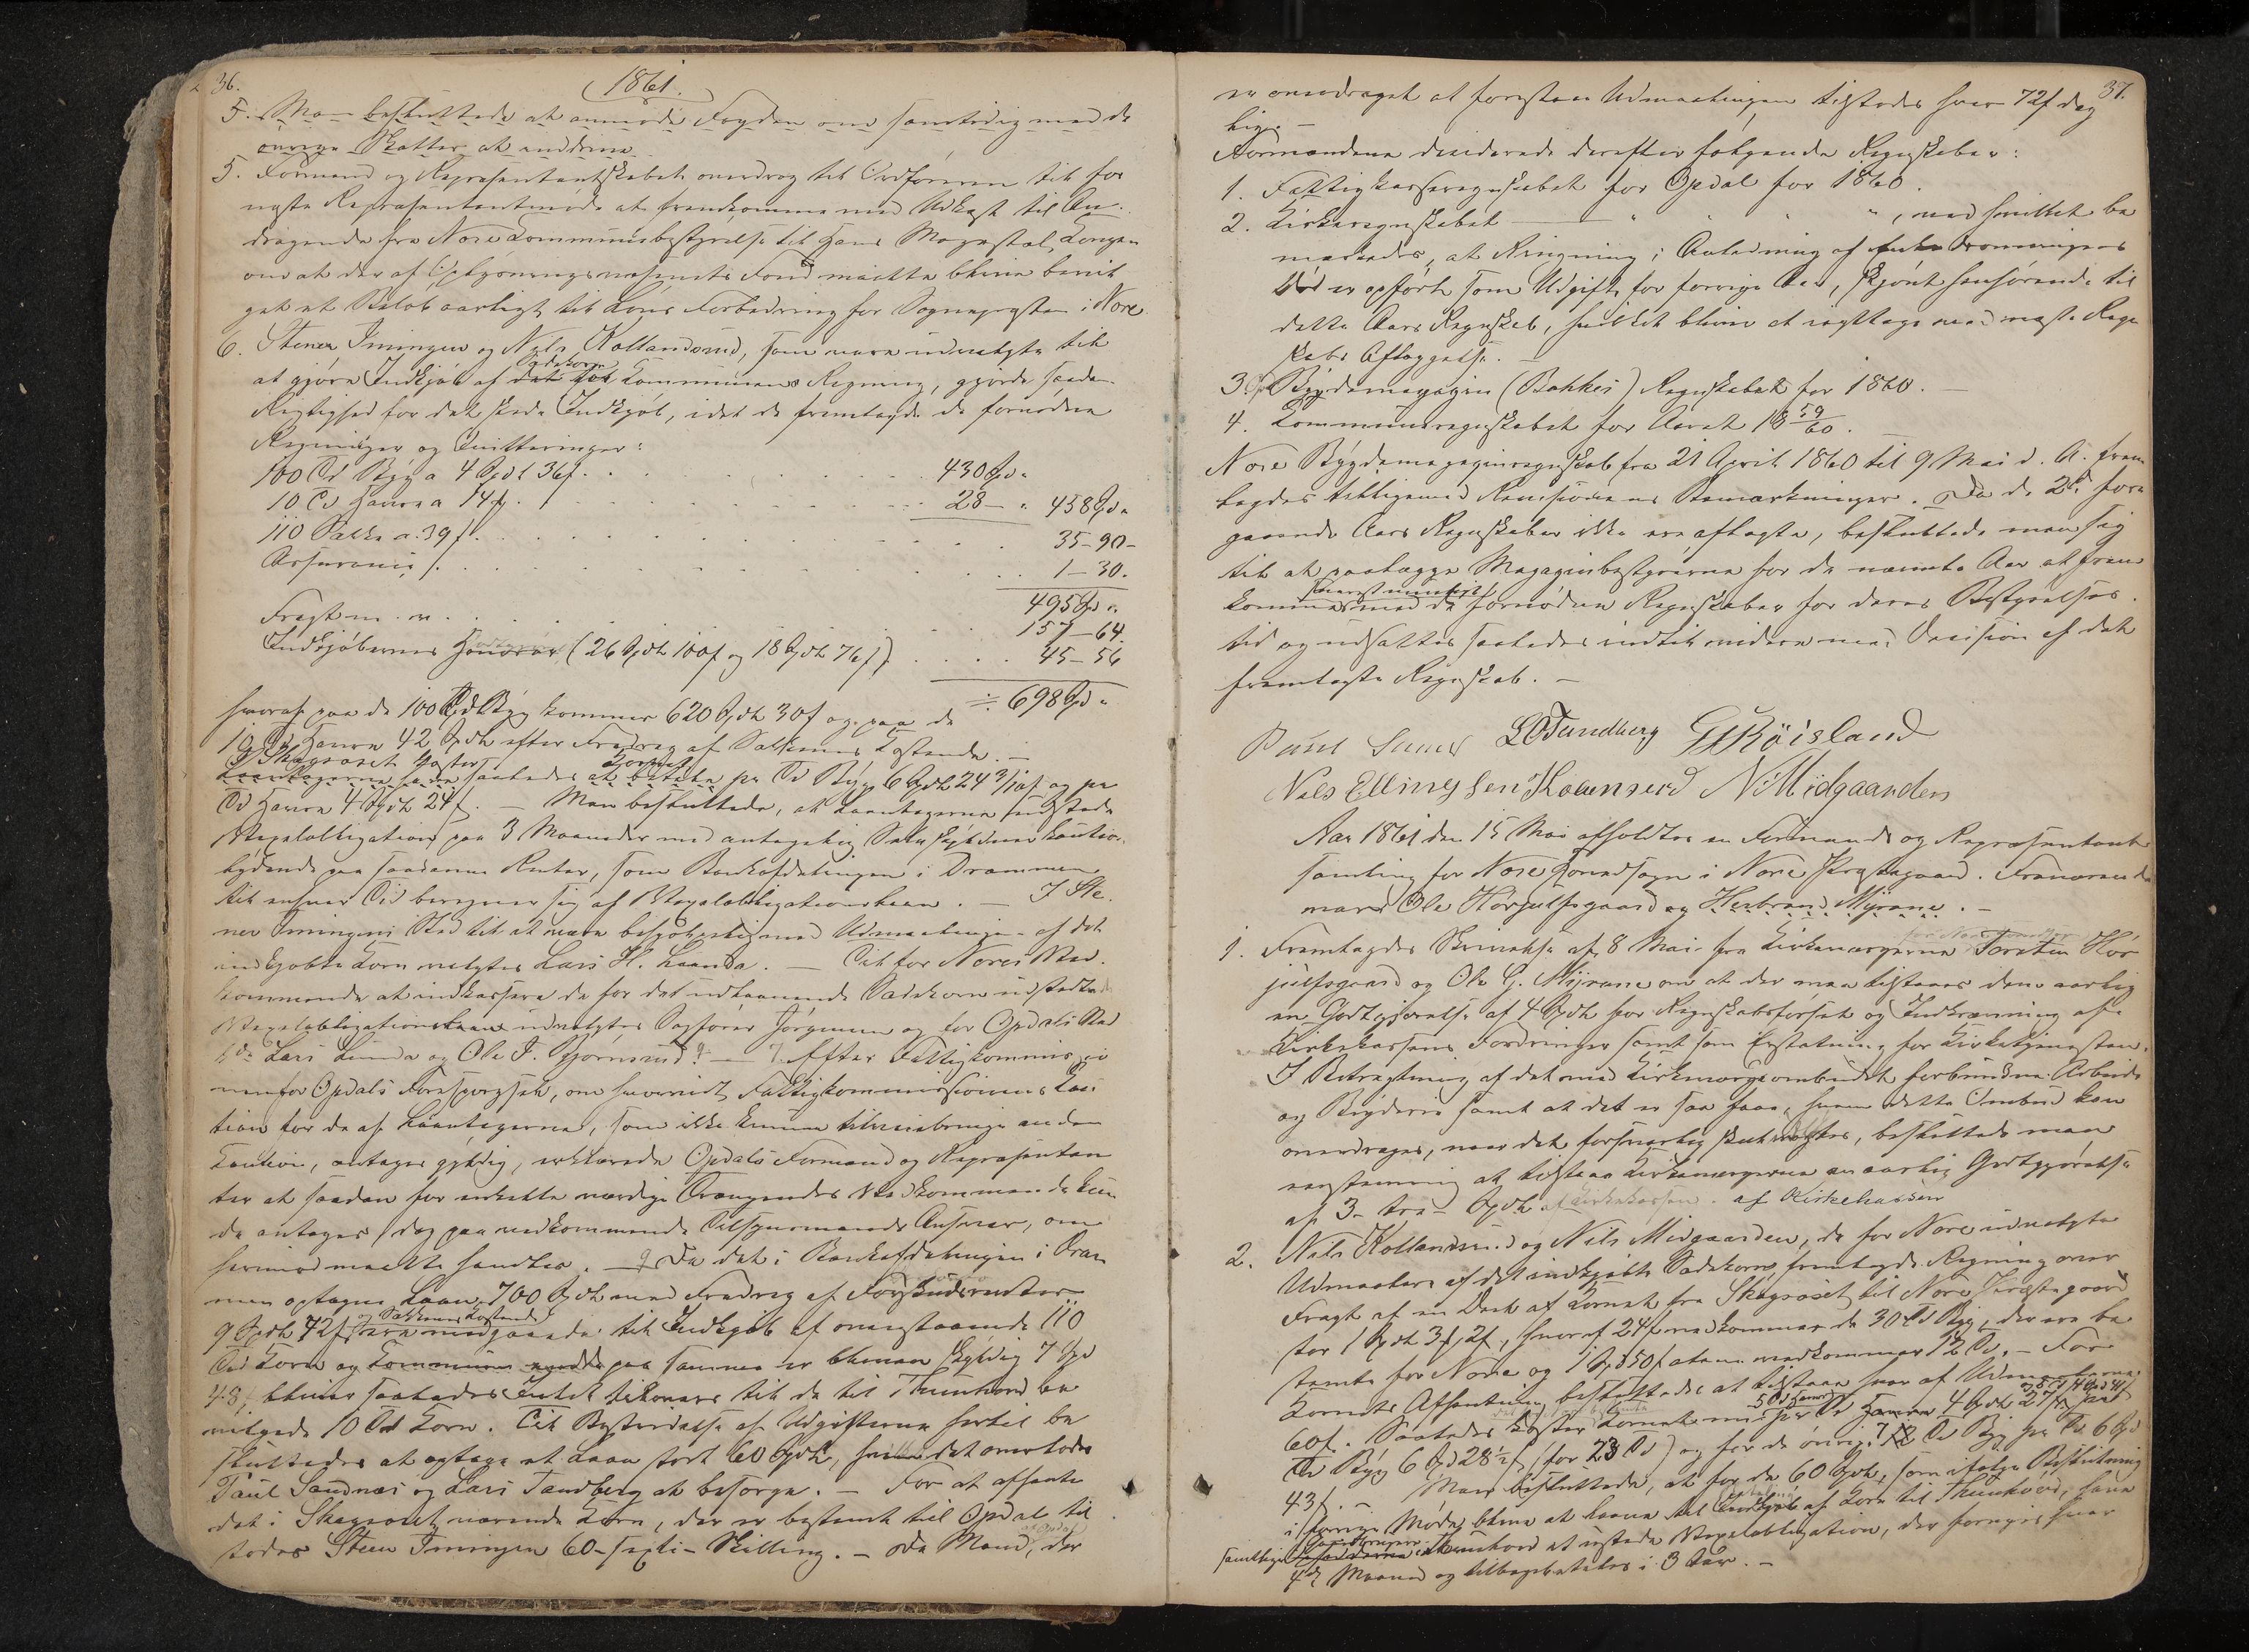 36.
1861.
5. Man besluttede at anmode Fogden om samtidig med de
øvrige Skatter at inddrive
5. Formand og Repræsentantskabet overdrog til Ordføreren til for
næste Repræsentantmøde at fremkomme med Udkast til An-
dragende fra Nore Kommunebestyrelse til Hans Majestæt Kongen
om at der af Oplysningsvæsenets Fond maatte blive bevil
get et Beløb aarligt til Løns Forbedring for Sognepræsten i Nore
6. Stener Imingen og Nils Kollandsrud, som vare udvalgte til
Sædekorn
at gjøre Indkjøb af det for Kommunens Regning, gjorde saadan
Rigtighed for det skede Indkjøb, idet de fremlagde de fornødne
Regninger og Qvitteringer:
100 Td Byg a 4 Spdl 36 s. 430 Spd "
10 Td Havre a 14 s. 28 - " 458 Spd "
110 Sække a 39 s. 35-90-
Assurance 1-30.
495 Spd "
Fragt m. v. 157-64.
Indkjøbernes Honorar (26 Spdl 100 s og 18 Spdl 76 s) 45-56
÷ 698 Spd "
hvoraf paa de 100 Td Byg kommer 620 Spdl 30 s og paa de
10 Td Havre 42 Spdl efter Fradrag af Sækkenes Kostende. -
I Skagsoset koster Kornet
Laantagerne have saaledes at betale pr Td Byg 6 Spdl 24 3/10 s og pr
Td Havre 4 Spdl 24 s. - Man besluttede, at Laantagerne udstede
Vexelobligation paa 3 Maaneder med antagelig Selvskyldner Kaution
lydende paa saadanne Renter, som Bankafdelingen i Drammen
til enhver Tid beregner sig af Vexelobligationslaan. - I Ste-
ner Imingens Sted til at være behjælpelig med Udmaalingen af det
indkjøbte Korn valgtes Lars H. Laanda. - Til for Nores Ved-
kommende at indkassere de for det udlaanende Sædekorn udstedte
Vexelobligationslaan udvalgtes Sagfører Jørgensen og for Opdals Ved
k. Lars Liunda og Ole T. Bjørnsrud. - 7. Efter Fattigkommissio
nen for Opdals Forespørgsel, om hvorvidt Fattigkommissionens Kau
tion for de af Laantagerne, som ikke kunne tilveiebringe anden
Kaution, antages gyldig, erklærede Opdals Formand og Repræsentan
ter at saadan for enkelte værdige Trængendes Vedkommende kun
de antages dog paa vedkommende Tilsynsmands Ansvar, om
herimod maatte handles. - Da det i Bankafdelingen i Dram
men optagne Laan, 700 Spdl med Fradrag af Forskudsrenter
og Sækkenes Kostende
9 Spdl 42 s ere medgaaede til Indkjøb af ovenstaaende 110
Td Korn og Kommunen endda paa samme er bleven skyldig 7 Spd
48 s, bliver saaledes Intet tilovers til de til Thunhovd be
vilgede 10 Td Korn. Til Bestridelse af Udgifterne hertil be
sluttedes at optage et Laan stort 60 Spdl, hvilket det overlodes
Paul Sandnæs og Lars Tandberg at besørge. - For at afhente
det i Skagsoset værende Korn, der er bestemt til Opdal til
stodes Steen Imingen 60 - sexti - Skilling. - De Mænd, der
37.
er overdraget at forestaa Udmaalingen tilstodes hver 72 s dag
lig. -
Formændene deciderede derefter følgende Regnskaber:
1. Fattigkasseregnskabet for Opdal for 1860.
2. Kirkeregnskabet " " ", ved hvilket be
mærkedes, at Ringning i Anledning af Enkedronningens
Død er opført som Udgift for forrige Aar, skjønt henhørende til
dette Aars Regnskab, hvilket bliver at iagttage ved næste Regn
skabs Aflæggelse. -
3. Bygdemagazin (Bakkes) Regnskabet for 1860.
4. Kommuneregnskabet for Aaret 18 59/60.
Nore Bygdemagazinregnskab fra 21 April 1860 til 9 Mai d. A. frem
lagdes tilligemed Revisionens Bemærkninger. Da de 2de fore
gaaende Aars Regnskaber ikke ere aflagte, besluttede man sig
til at paalægge Magazinbestyrerne for de nævnte Aar at frem
snarest muligst
komme med de fornødne Regnskaber for deres Bestyrelses-
tid og udsattes saaledes indtil videre med Decision af det
fremlagte Regnskab. -
Paul Sannes LO Tandberg G Røisland
Nils Ellingsen Kolansrud N Midgaarden
Aar 1861 den 15 Mai afholdtes en Formands og Repræsentant
samling for Nore Hovedsogn i Nore Præstegaard. Fraværende
vare Ole Hørjulfsgaard og Herbrand Myrane. -
1. Fremlagdes Skrivelse af 8 Mai fra Kirkeværgerne Torsten Hør
julfsgaard og Ole G. Myrane om at der maa tilstaaes dem aarlig
en Godtgjørelse af 4 Spdl for Regnskabsførsel og Indkrævning af
Kirkekassens Fordringer samt som Erstatning for Kirketjenesten.
I Betragtning af det med Kirkeværgeombudet forbundne Arbeide
og Byrder samt at det er saa faae, hvem dette Ombud kan
overdrages, naar det forsvarlig skal røgtes, besluttede man
eenstemmig at tilstaa Kirkeværgerne en aarlig Godtgjørelse
af 3 - tre - Spdl af Kirkekassen. af Kirkekassen
2. Nils Kollandsrud og Nils Midgaarden, de for Nore udvalgte
Udmaalere af det indkjøbte Sædekorn, fremlagde Regning over
Fragt af en Deel af Kornet fra Skagsoset til Nore Præstegaard
stor 1 Spdl 3 s 2 s, hvoraf 24 s vedkommer de 30 Td Byg, der ere be
stemte for Nore og 1 Spd 50 s alene vedkommer 12 Td. - For
Kornets Afhentning besluttedes at tilstaa hver af Udmaalerne
60 s. Saaledes koster Kornet nu pr Td Havre 4 Spdl 27 s pr
Td Byg 6 Spd 28 1/2 s (for 23 Td) og for de øvrige 7 Td Byg pr Td 6 Spd
43 s. - Man besluttede, at for de 60 Spdl, som ifølge Beslutning
i forrige Møde blive at laane til Indkjøb af Korn til Thunhovd, have
samtlige Thunhovd at udstede Vexelobligation, der fornyes hver
4de Maaned og tilbagebetales i 3 Aar. -